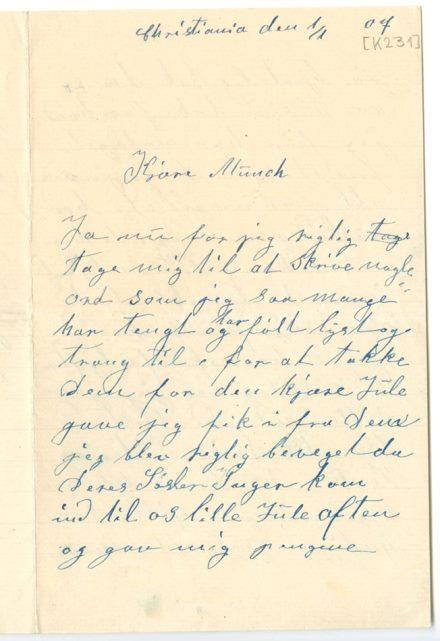 Christiania den 1/1 04
[K231]
Kjære Munch
Ja nu for jeg riglig tage
tage mig til at skrive nogle
ord som jeg saa mange
har tengt og Har følt lyst og
trang til for at takke
Dem for den kjære Jule
gave jeg fik i fra Dem
jeg blev riglig beveget da
Deres Søster Inger kom
ind til os lille Jule aften
og gav mig pengene